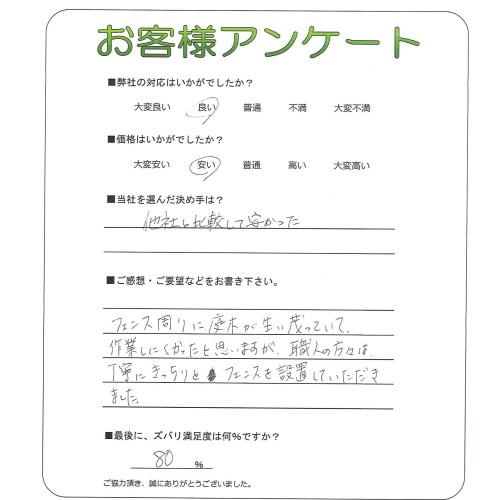 お客様アンケート
■弊社の対応はいかがでしたか？
大変良い 良い 普通 不満 大変不満
■価格はいかがでしたか？
大変安い 安い 普通 高い 大変高い
■当社を選んだ決め手は？
他社と比較して安かった
■ご感想・ご要望などをお書き下さい。
フェンス周りに庭木が生い茂っていて、
作業しにくかったと思いますが、職人の方々は、
丁寧にきっちりと フェンスを設置していただき
ました。
■最後に、ズバリ満足度は何％ですか？
80 %
ご協力頂き、誠にありがとうございました。